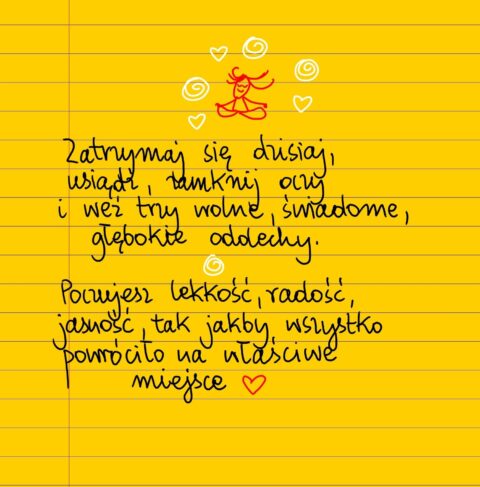 Zatrzymaj się dzisiaj,
usiądź, zamknij oczy
i weź trzy wolne, świadome,
głębokie oddechy.
Poczujesz lekkość, radość,
jasność, tak jakby wszystko
powróciło na właściwe
miejsce